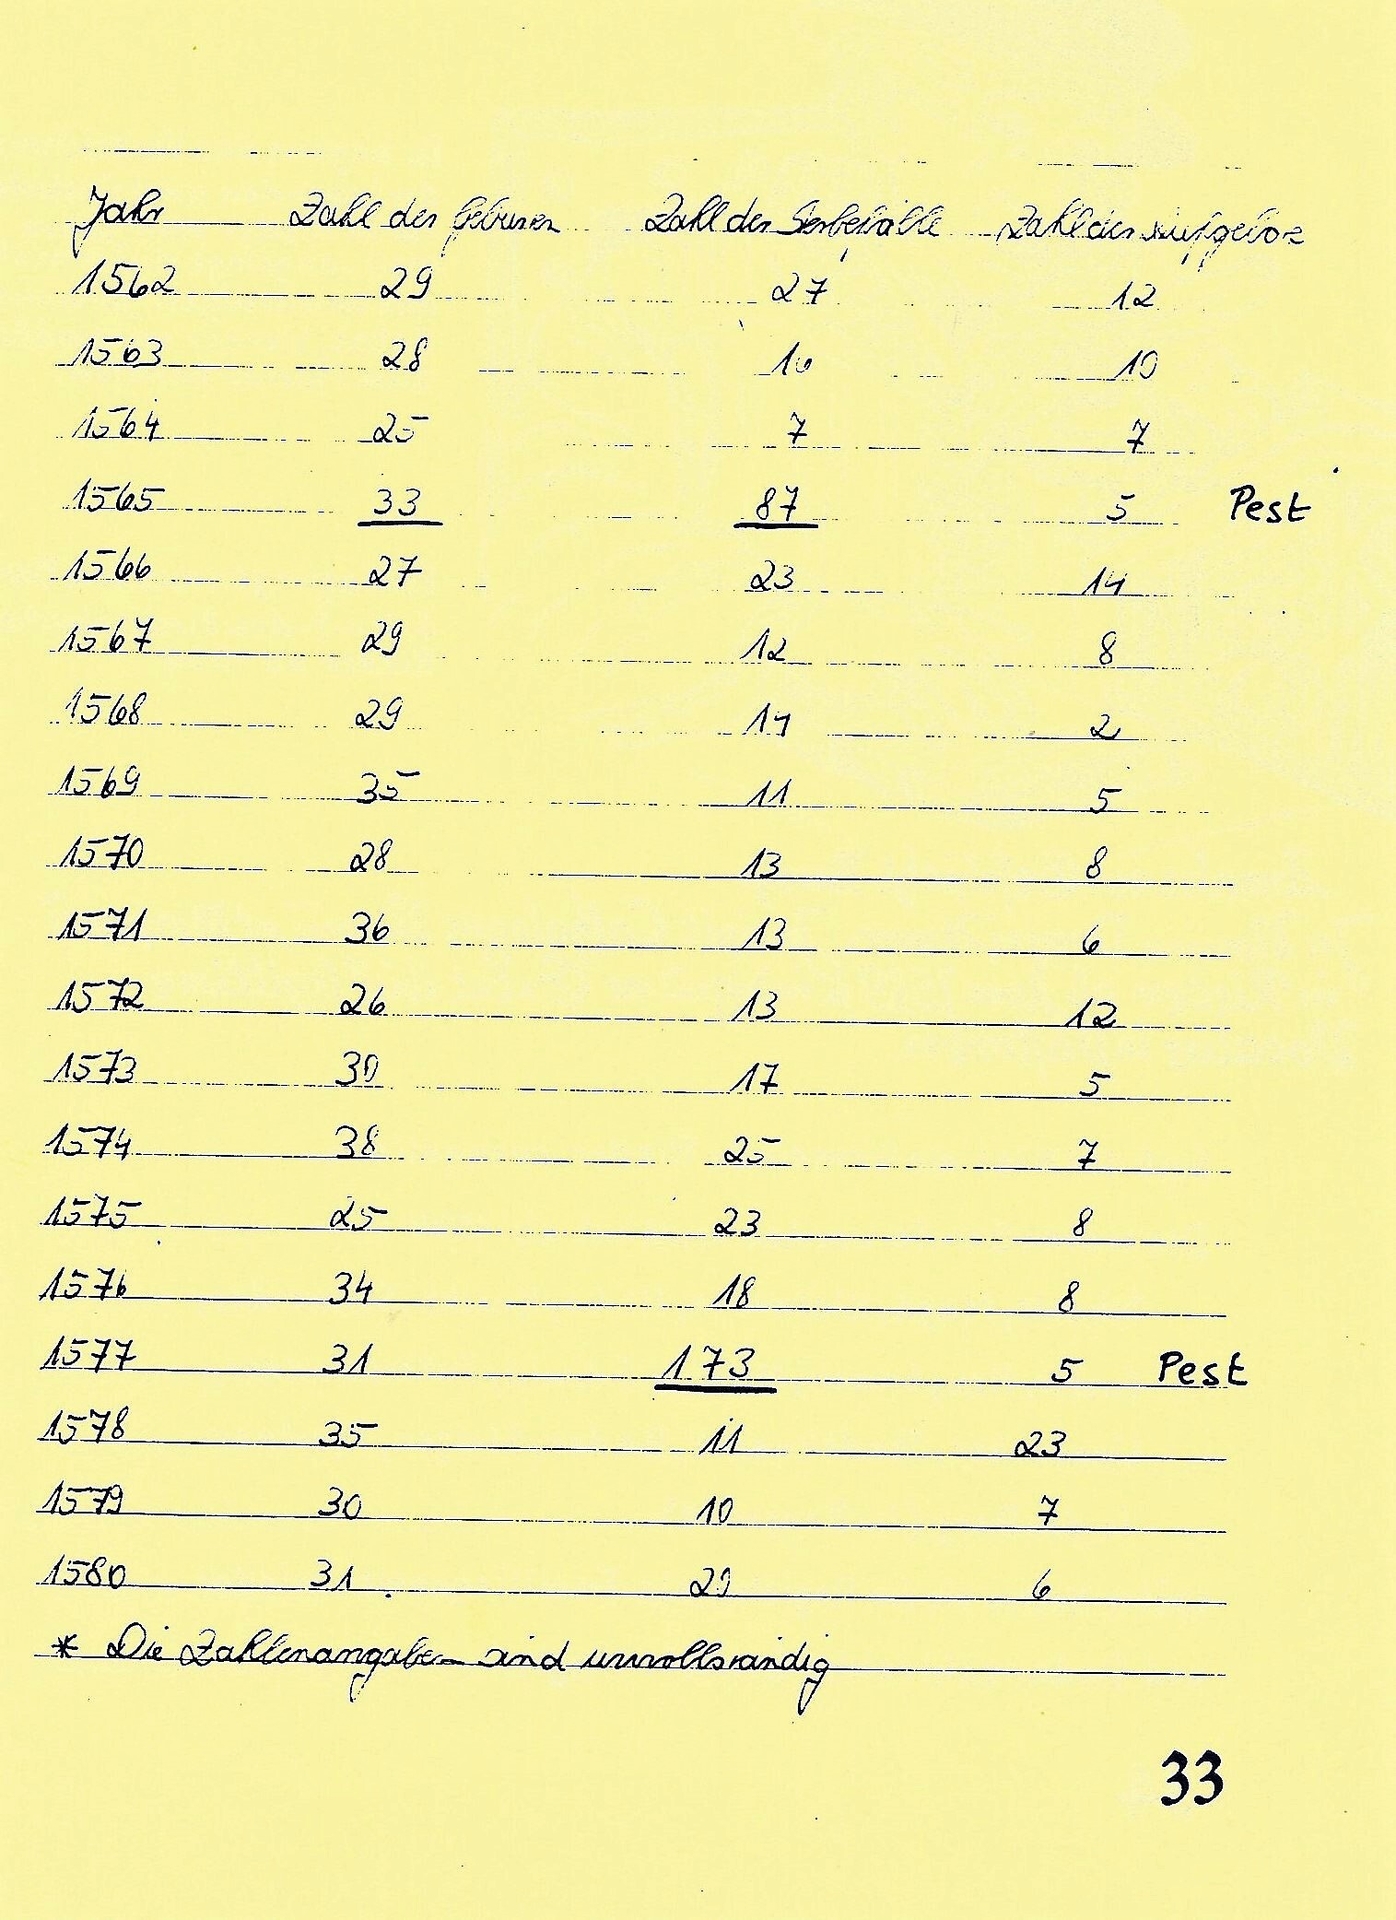 Jahr Zahl der Geburten Zahl der Sterbefälle Zahl der Aufgebote
1562 29 27 12
1563 28 10
1564 25 7 7
1565 33 87 5 Pest
1566 27 23 14
1567 29 12 8
1568 29 2
1569 35 11 5
1570 28 13 8
1571 36 13 6
1572 26 13 12
1573 30 17 5
1574 38 25 7
1575 25 23 8
1576 34 18 8
1577 31 173 5 Pest
1578 35 11 23
1579 30 10 7
1580 31 20 6
* Die Zahlenangaben sind unvollständig
33